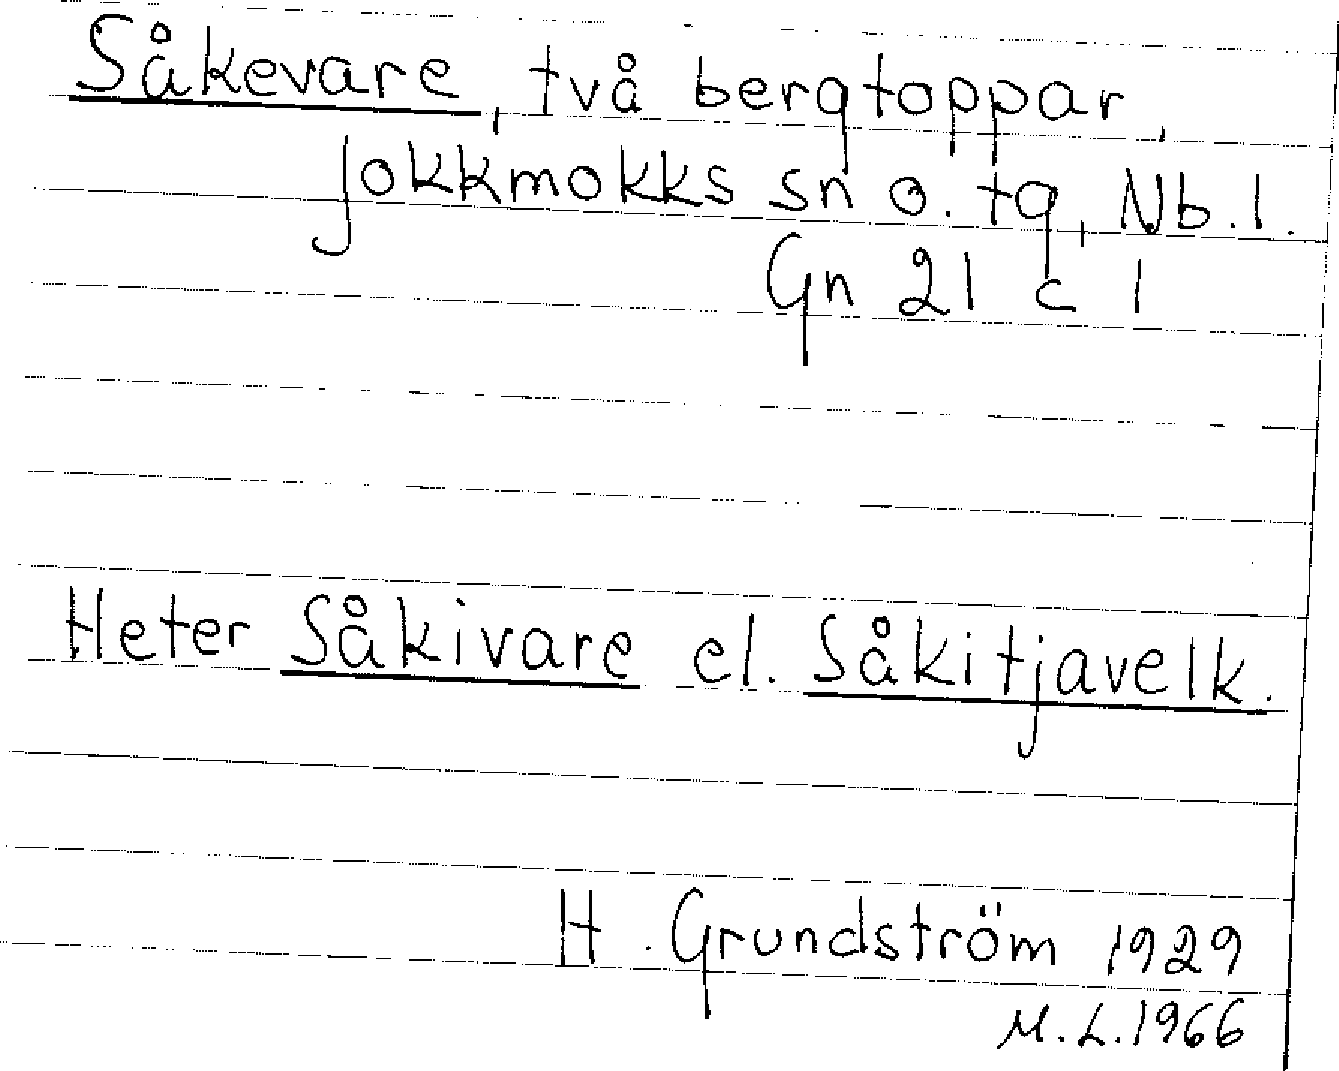 Såkevare, två bergtoppar,
Jokkmokks sn o. tg, Nb. l.
Gn 21 c 1
Heter Såkivare el. Såkitjavelk.
H. Grundström 1929
M.L. 1966